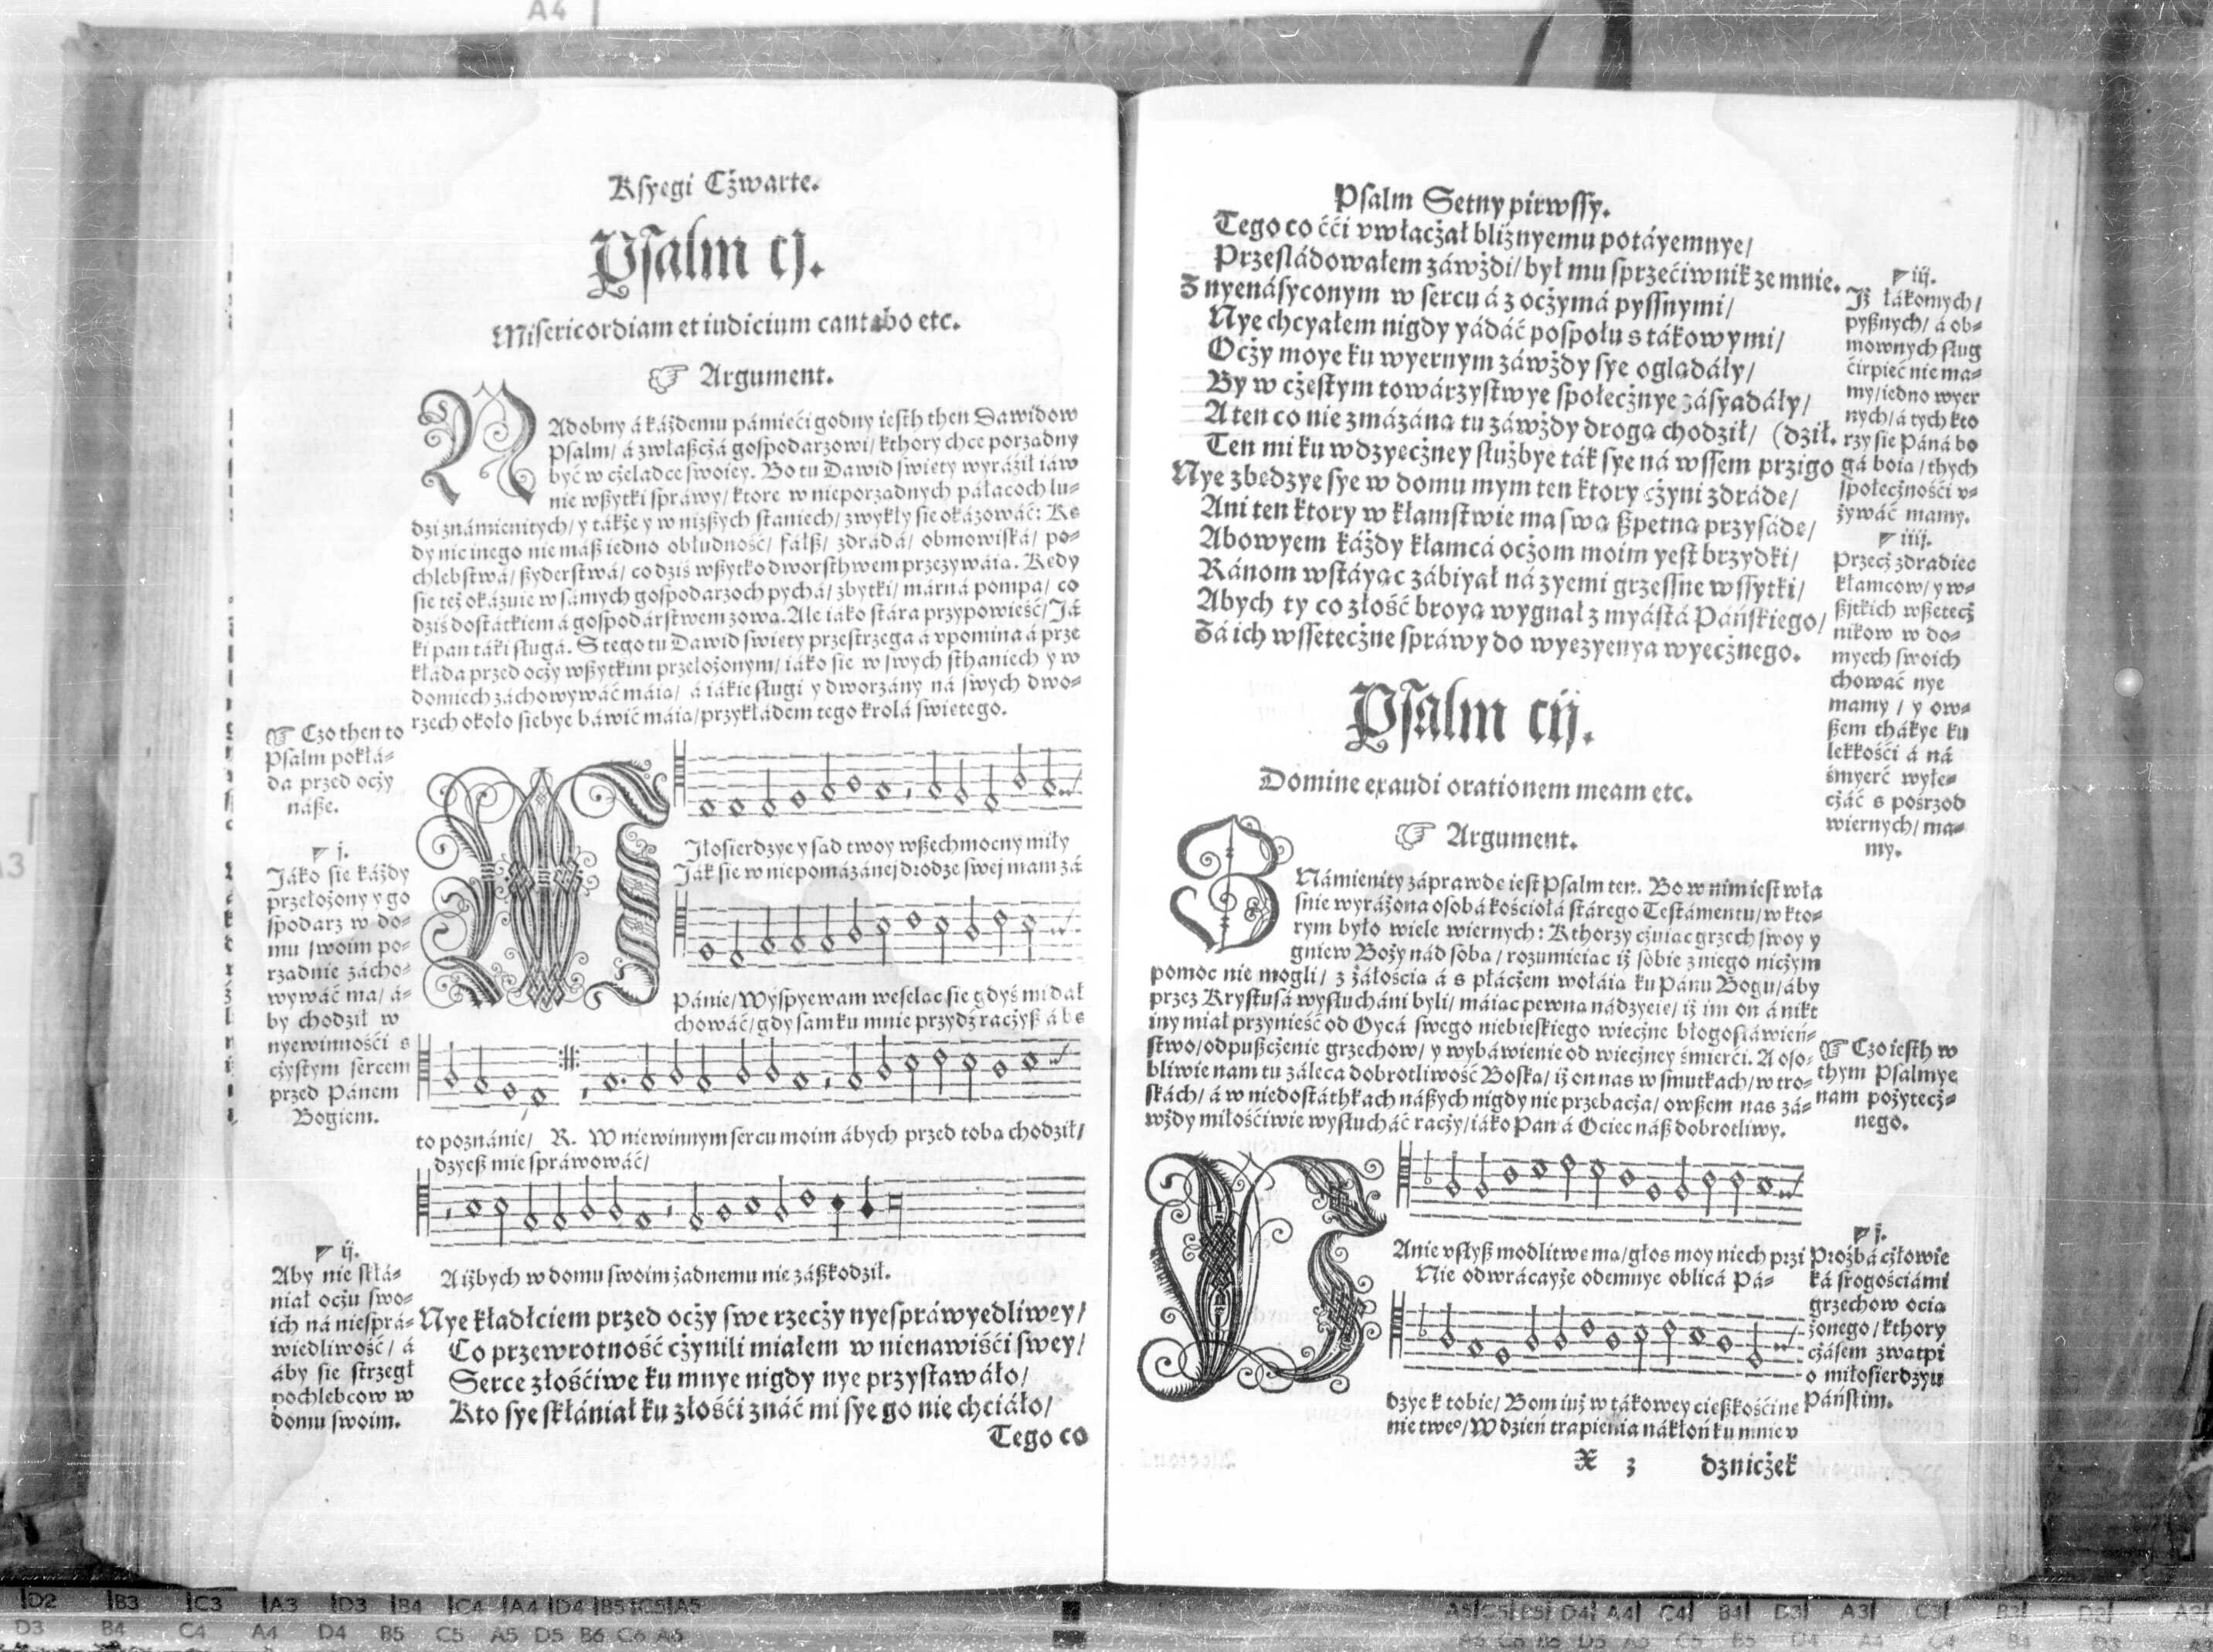 Kſyegi Cżwarte.
Pſalm cj.
Miſericordiam et iudicium cantabo etc.
☞ Argument.
NAdobny á káżdemu pámięći godny ieſth then Dawidow
Pſalm/ á zwłaßcżá goſpodarzowi/ kthory chce porządny
być w cżeladce ſwoiey. Bo tu Dawid ſwięty wyráźił iáw
nie wßytki ſpráwy/ ktore w nieporządnych páłacoch lu⸗
dzi známienitych/ y tákże y w niżßych ſtaniech/ zwykły ſię okázowáć: Kę
dy nic inego nie máß iedno obłudność/ fałß/ zdrádá/ obmowiſká/ po⸗
chlebſtwá/ ßyderſtwá/ co dziś wßytko dworſthwem przezywáią. Kedy
ſię też okázuie w ſámych goſpodarzoch pychá/ zbytki/ márna pompá/ co
dziś doſtátkiem á goſpodárſtwem zową. Ale iáko ſtára przypowieść/ Já
ki pan táki ſługá. S tego tu Dawid ſwięty przeſtrzega á vpomina á prze
kłada przed ocży wßytkim przełożonym/ iáko ſię w ſwych ſthaniech y w
domiech záchowywáć máią/ á iákie ſługi y dworzány ná ſwych dwo⸗
rzech około ſiebye báwić máią/ przykładem tego krolá ſwiętego.
☞ Czo then to
Pſalm pokłá⸗
da przed ocży
náße.
j.
Jáko ſię káżdy
przełożony y go
ſpodarz w do⸗
mu ſwoim po⸗
rządnie zácho⸗
wywáć ma/ á⸗
by chodził w
nyewinnośći s
cżyſtym ſercem
przed Pánem
Bogiem.
MJłoſierdzye y ſąd twoy wßechmocny miły
Ják ſię w niepomázánej drodze ſwej mam zá
Pánie/ Wyſpyewam weſeląc ſię gdyś mi dał
chowáć/ gdy ſam ku mnie przydź racżyß á bę
to poznánie/ R. W niewinnym ſercu moim ábych przed tobą chodził/
dzyeß mię ſpráwowáć/
A iżbych w domu ſwoim żadnemu nie záßkodził.
ij.
Aby nie ſkłá⸗
niał ocżu ſwo⸗
ich ná nieſprá⸗
wiedliwość/ á
áby ſię ſtrzegł
pochlebcow w
domu ſwoim.
Nye kładłciem przed ocży ſwe rzecży nyeſpráwyedliwey/
Co przewrotność cżynili miałem w nienawiśći ſwey/
Serce złośćiwe ku mnye nigdy nye przyſtawáło/
Kto ſye ſkłániał ku złośći znáć mi ſye go nie chciáło/
Tego co
Pſalm Setny pirwſſy.
Tego co ććí vwłacżał bliźnyemu potáyemnye/
Przeſládowałem záwżdi/ był mu ſprzećiwnik ze mnie.
Z nyenáſyconym w ſercu á z ocżymá pyſſnymi/
Nye chcyałem nigdy yádáć poſpołu s tákowymi/
Ocży moye ku wyernym záwżdy ſye oglądáły/
By w cżeſtym towárzyſtwye ſpołecżnye záſyadáły/
A ten co nie zmázáną tu záwżdy drogą chodził/ (dził.
Ten mi ku wdzyecżney ſłużbye ták ſye ná wſſem przigo
Nye zbędzye ſye w domu mym ten ktory cżyni zdráde/
Ani ten ktory w kłamſtwie ma ſwą ßpetną przyſáde/
Abowyem káżdy kłamcá ocżom moim yeſt brzydki/
Ránom wſtáyąc zábiyał ná zyemi grzeſſne wſſytki/
Abych ty co złość broyą wygnał z myáſtá Páńſkiego/
Zá ich wſſetecżne ſpráwy do wyęzyenya wyecżnego.
iij.
Jż łákomych/
pyßnych/ á ob⸗
mownych ſług
ćirpieć nie ma⸗
my/ iedno wyer
nych/ á tych kto
rzy ſię Páná bo
gá boią/ thych
ſpołecżnośći v⸗
żywáć mamy.
iiij.
Przecż zdradiec
kłamcow/ y w⸗
ßitkich wßetecż
nikow w do⸗
myech ſwoich
chowáć nye
mamy/ y ow⸗
ßem thákye ku
lekkośći á ná
śmyerć wyłę⸗
cżáć s pośrzod
wiernych/ ma⸗
my.
Pſalm cij.
Domine exaudi orationem meam etc.
☞ Argument.
ZNámienity záprawdę ieſt Pſalm ten. Bo w nim ieſt wła
ſnie wyráżona oſobá kośćiołá ſtárego Teſtámentu/ w kto⸗
rym było wiele wiernych: Kthorzy cżuiąc grzech ſwoy y
gniew Boży nád ſobą/ rozumieiąc iż ſobie z niego nicżym
pomoc nie mogli/ z żáłością á s płácżem wołáią ku Pánu Bogu/ áby
przez Kryſtuſá wyſłucháni byli/ máiąc pewną nádzyeię/ iż im on á nikt
iny miał przynieść od Oycá ſwego niebieſkiego wiecżne błogoſłáwień⸗
ſtwo/ odpußcżenie grzechow/ y wybáwienie od wiecżney śmierći. A oſo⸗
bliwie nam tu záleca dobrotliwość Boſką/ iż on nas w ſmutkach/ w tro⸗
ſkách/ á w niedoſtáthkach náßych nigdy nie przebacża/ owßem nas zá⸗
wżdy miłośćiwie wyſłucháć racży/ iáko Pan á Ociec náß dobrotliwy.
☞ Czo ieſth w
thym Pſalmye
nam pożytecż⸗
nego.
PAnie vſłyß modlitwę mą/ głos moy niech przi
Nie odwrácayże odemnye oblicá Pá⸗
dzye k tobie/ Bom iuż w tákowey cięßkośći ne
nie tweº/ W dzień trapienia nákłoń ku mnie v
j.
Prożbá cżłowie
ká ſrogościámi
grzechow ocią
żonego/ kthory
cżáſem zwątpi
o miłoſierdzyu
Páńſkim.
X 3 dzniczżek